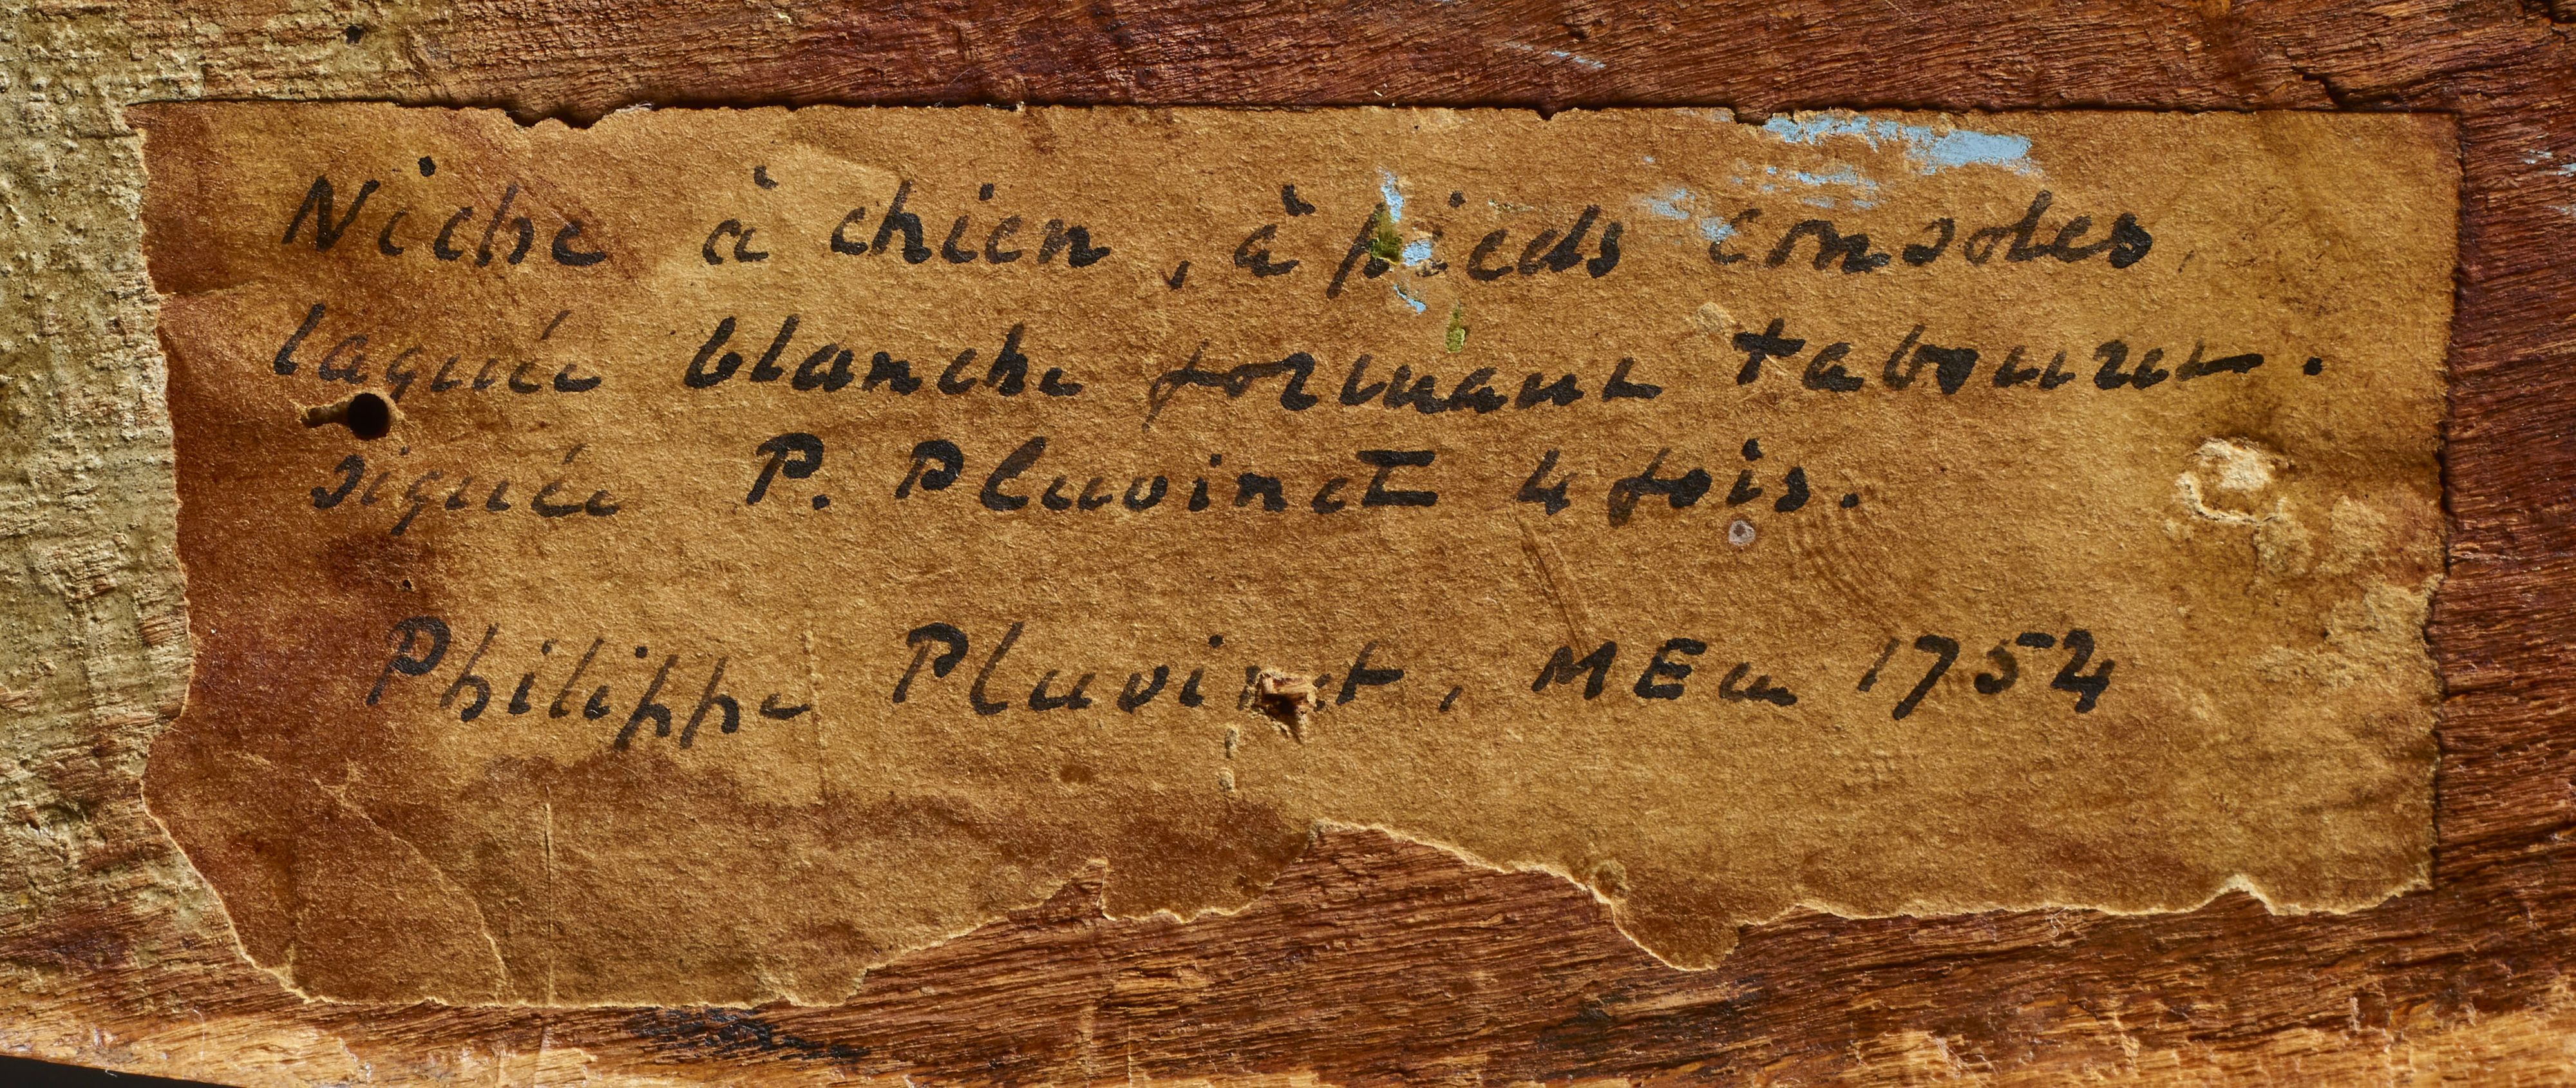 Niche à chien, à pieds consoles,
laquée blanche formant tabouret.
signée P. Pluvinet 4 fois.
Philippe Pluvinet, ME en 1754